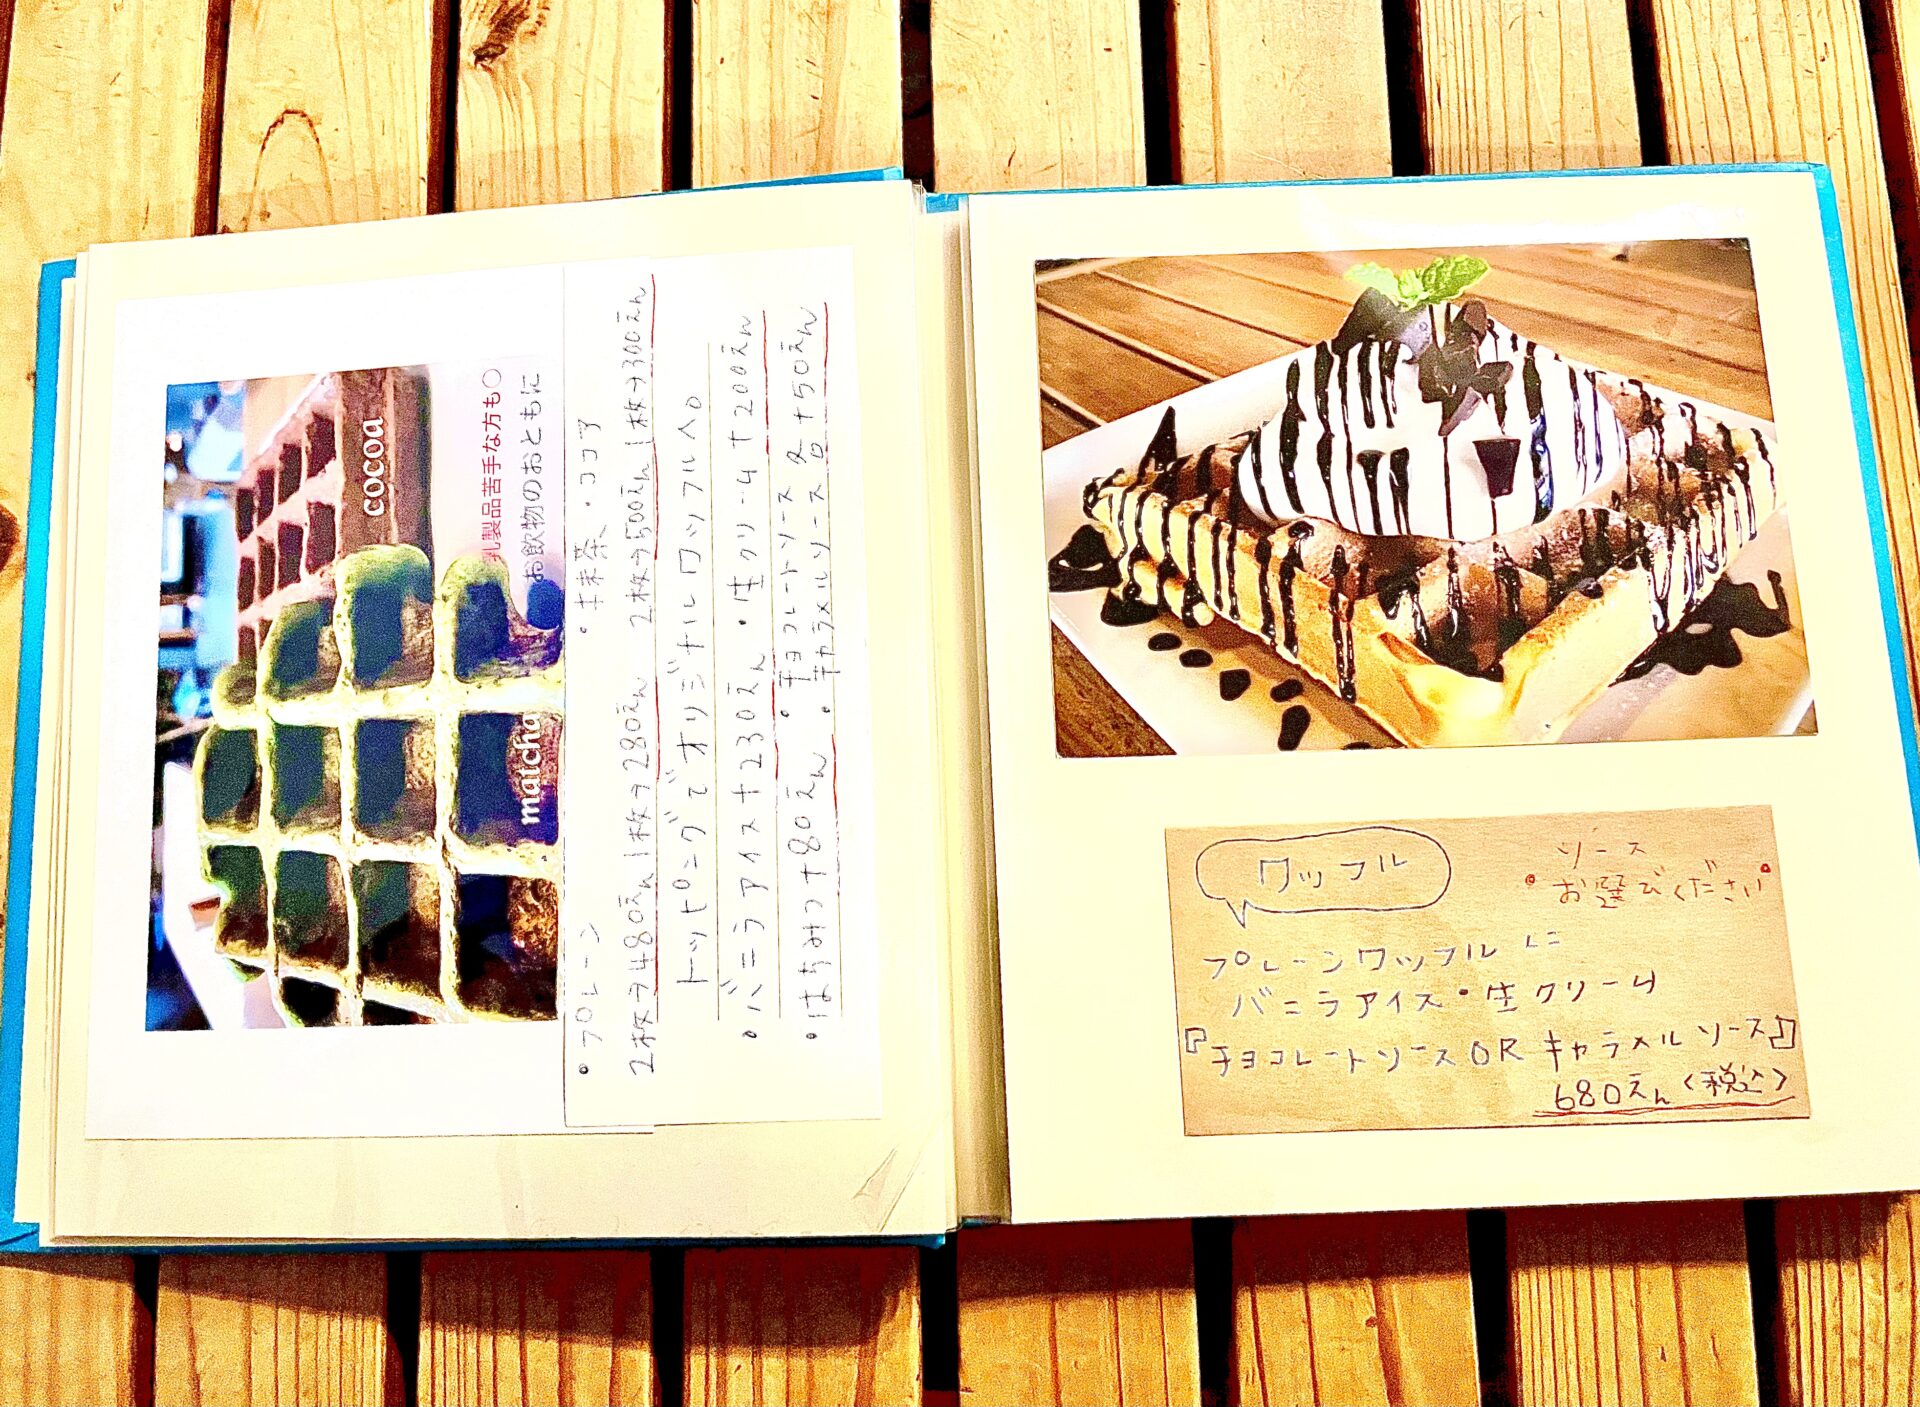 cocoa
matcha
乳製品苦手な方も○
お飲物のおともに
・プレーン ・抹茶・ココア
2枚→480えん 1枚→280えん 2枚→500えん 1枚→300えん
トッピングでオリジナルワッフルへ。
・バニラアイス+230えん ・生クリーム+200えん
・はちみつ+80えん ・チョコレートソース
・キャラメルソース 各+50えん
ワッフル
ソース
・お選びください・
プレーンワッフルに
バニラアイス・生クリーム
『チョコレートソース OR キャラメルソース』
680えん〈税込〉